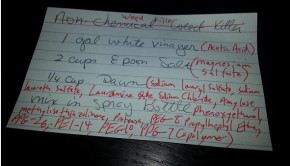 Weed Killer
Non-Chemical Insect Killer
1 gal white vinegar (Acetic Acid)
2 cups Epson Salt (magnesium
sulfate)
1/4 cup Dawn (Sodium Lauryl Sulfate, Sodium
laureth Sulfate, Lauramine Oxide, Sodium Chloride,
mix in Spray Bottle Phenoxyethanol,
methylisothiazolinone, PEG-8 Propylheptyl Ether,
PPG-26, PEI-14 PEG-10, PPG-7 Copolymer)